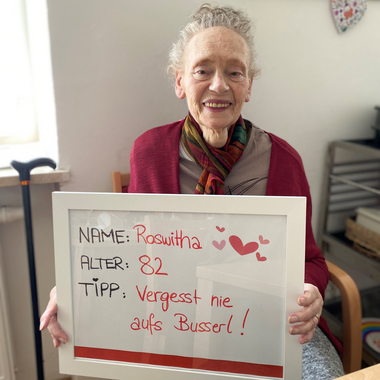 NAME: Roswitha
ALTER: 82
TIPP: Vergesst nie
aufs Busserl!